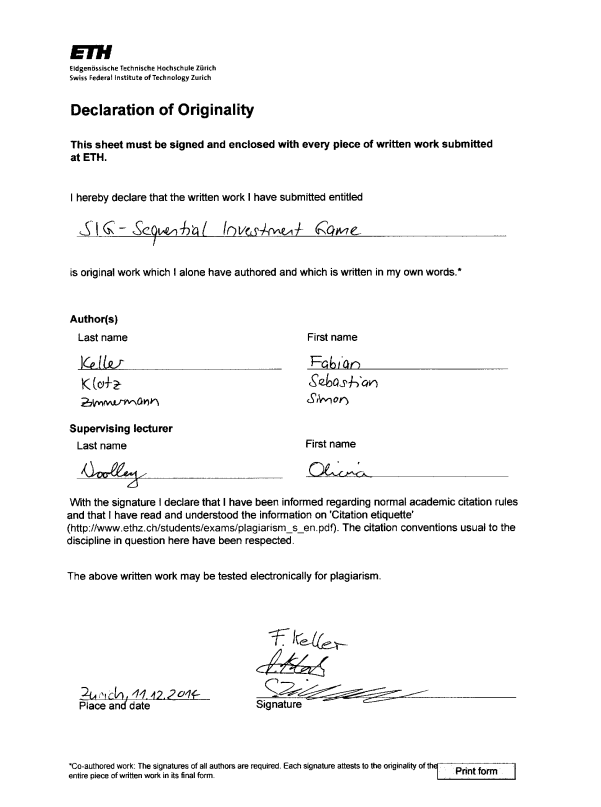 ETH
Eidgenössische Technische Hochschule Zürich
Swiss Federal Institute of Technology Zurich
Declaration of Originality
This sheet must be signed and enclosed with every piece of written work submitted
at ETH.
I hereby declare that the written work I have submitted entitled
SIG - Sequential Investment Game
is original work which I alone have authored and which is written in my own words.*
Author(s)
Last name First name
Keller Fabian
Klotz Sebastian
Zimmermann Simon
Supervising lecturer
Last name First name
Woolley Olivia
With the signature I declare that I have been informed regarding normal academic citation rules
and that I have read and understood the information on 'Citation etiquette'
(http://www.ethz.ch/students/exams/plagiarism_s_en.pdf). The citation conventions usual to the
discipline in question here have been respected.
The above written work may be tested electronically for plagiarism.
F. Keller
Zurich, 11.12.2014
Place and date Signature
*Co-authored work: The signatures of all authors are required. Each signature attests to the originality of the
entire piece of written work in its final form.
Print form